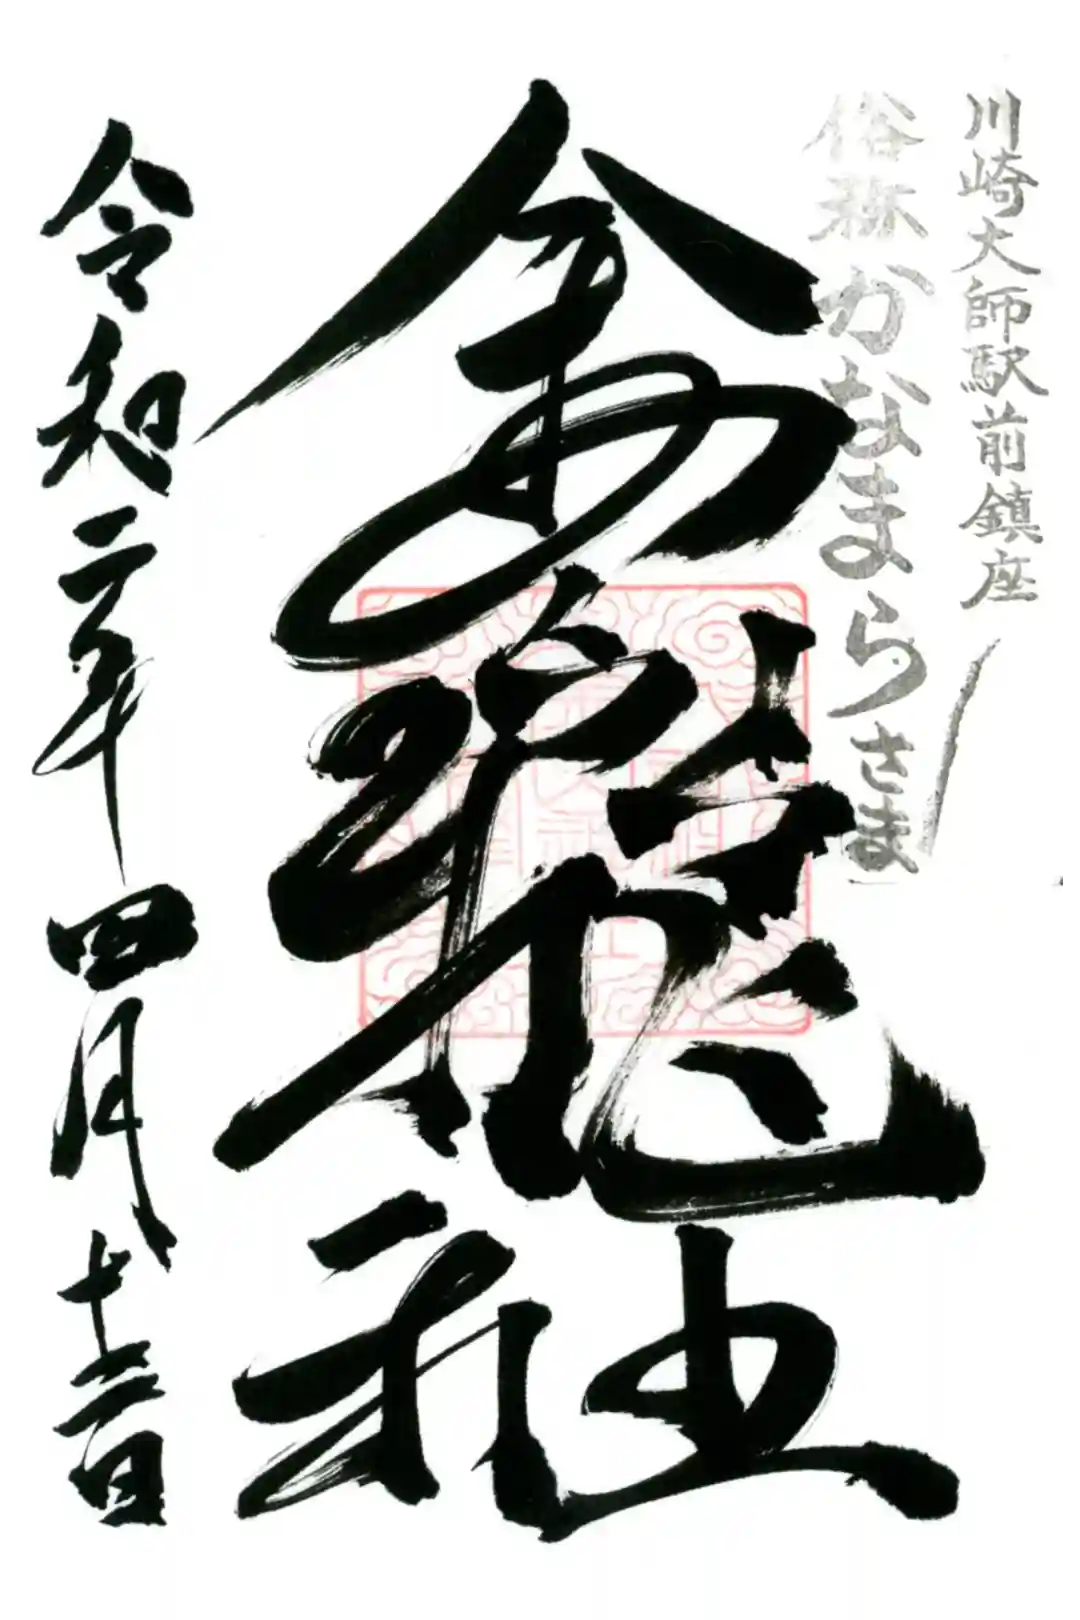 川崎大師駅前鎮座
俗称かなまらさま
金龍社
令和二年四月十二日